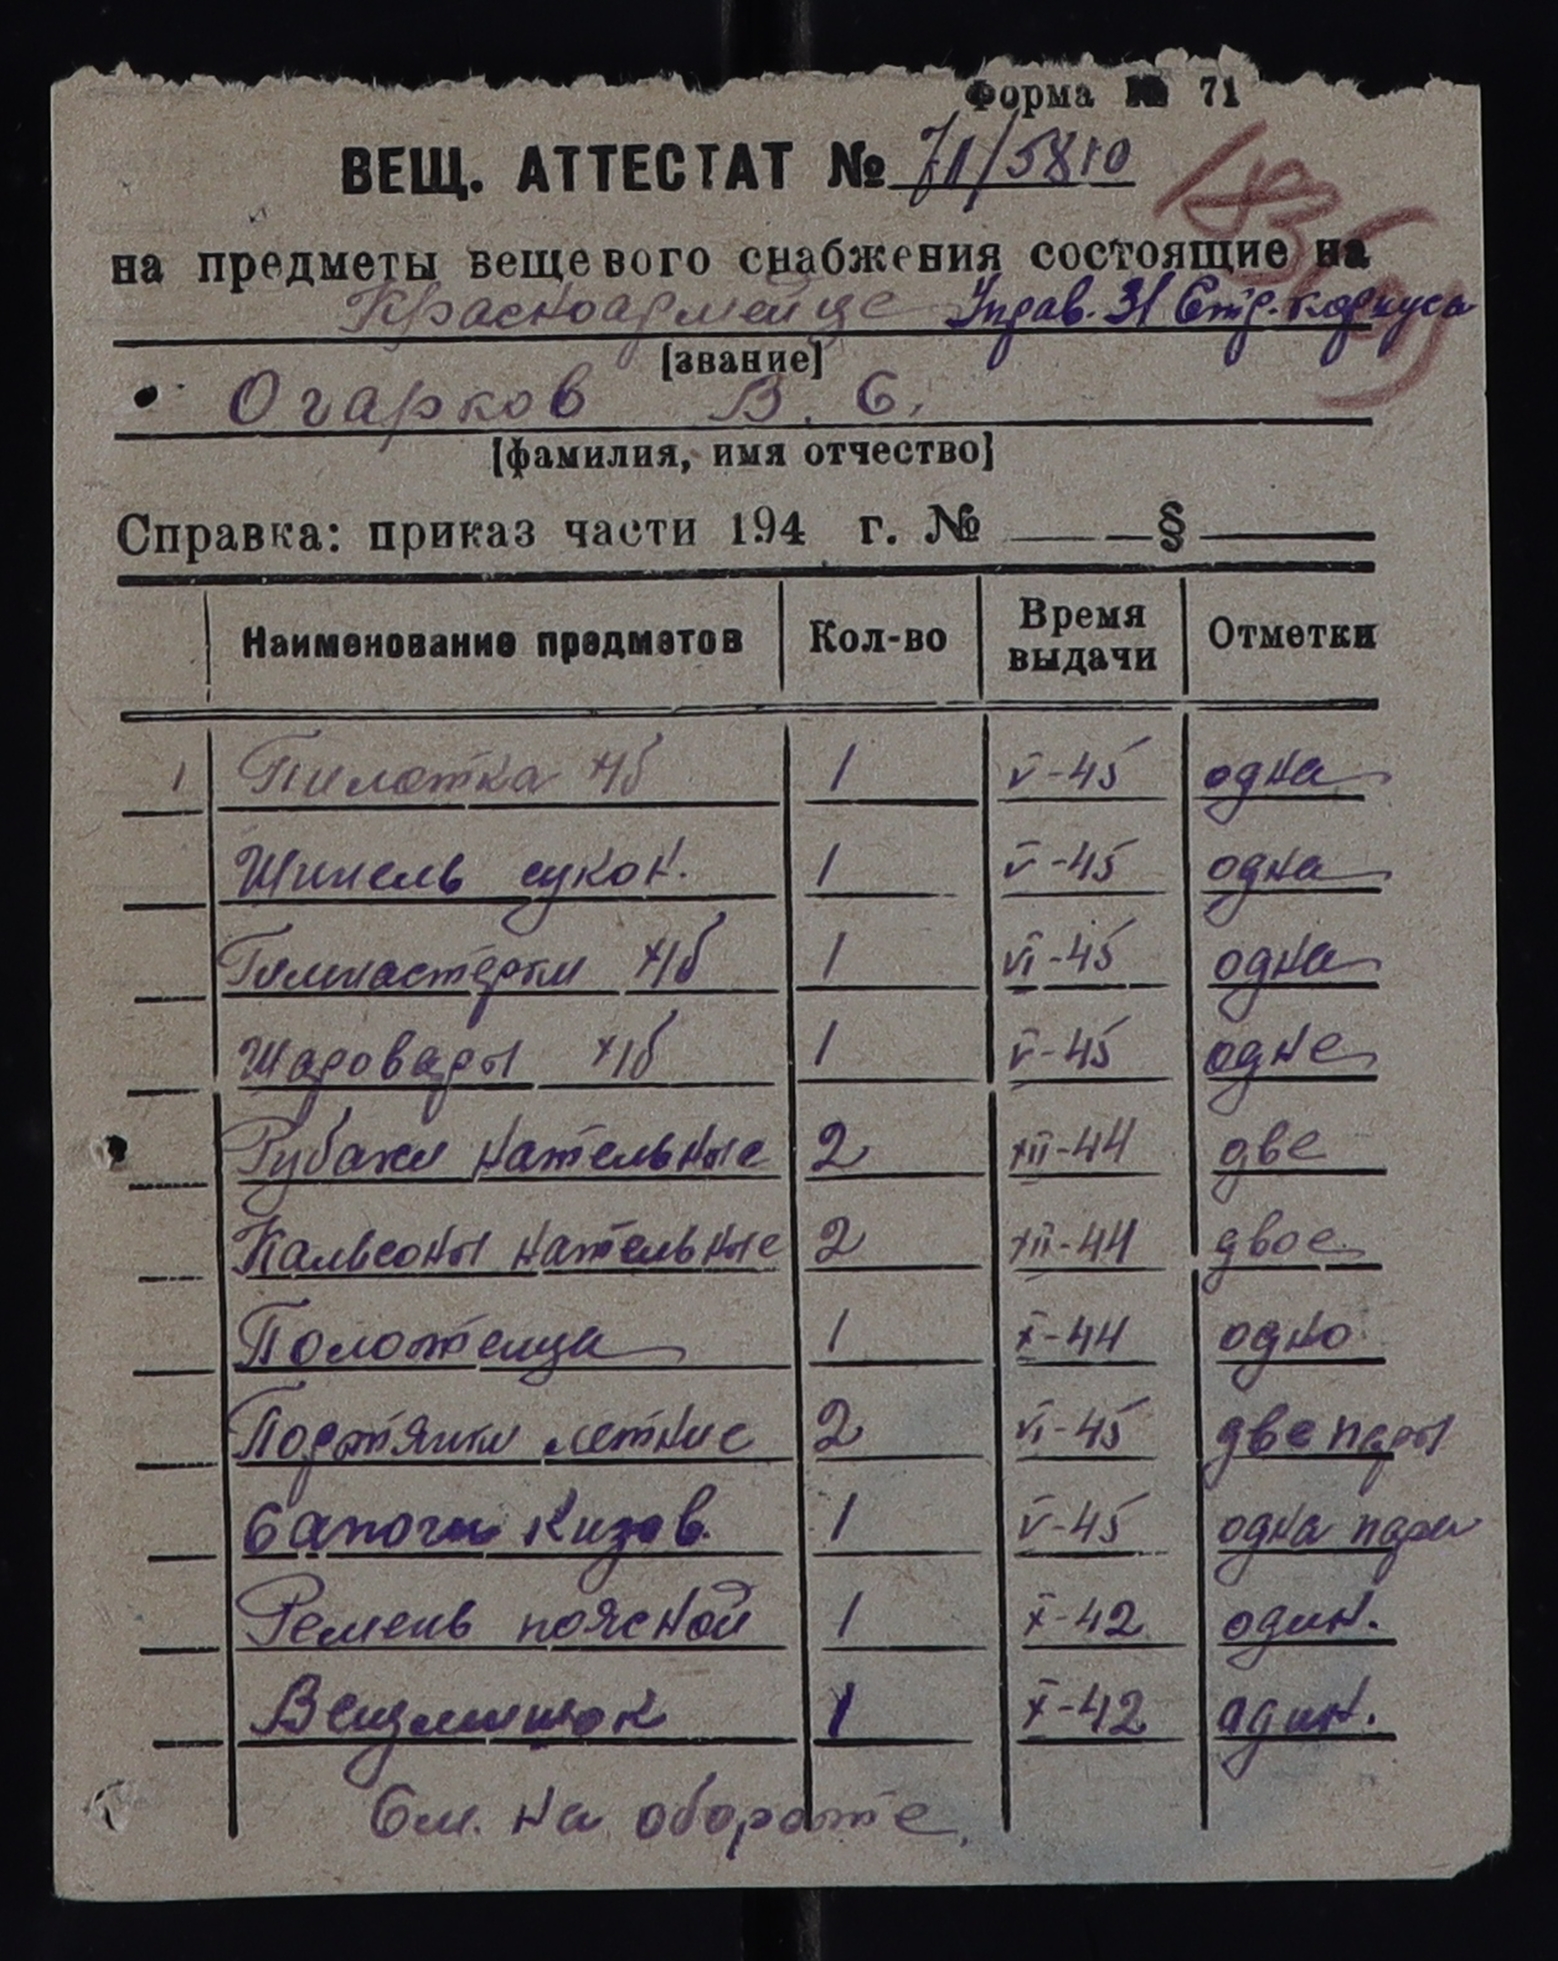 Форма № 71
ВЕЩ. АТТЕСТАТ № 71/5810
на предметы вещевого снабжения состоящие на
Красноармейце Управ. 31 Стр. корпуса
[звание]
Огарков В. С.
[фамилия, имя отчество]
Справка: приказ части 194 г. № §
Наименование предметов Кол-во Время выдачи Отметки
1 Пилотка х/б 1 V-45 одна
Шинель сукон. 1 V-45 одна
Гимнастерки х/б 1 VI-45 одна
Шаровары х/б 1 V-45 одне
Рубахи нательные 2 XII-44 две
Кальсоны нательные 2 XII-44 двое
Полотенца 1 X-44 одно
Портянки летние 2 VI-45 две пары
Сапоги кирзов. 1 V-45 одна пара
Ремень поясной 1 X-42 один.
Вещмешок 1 X-42 один.
См. на обороте.